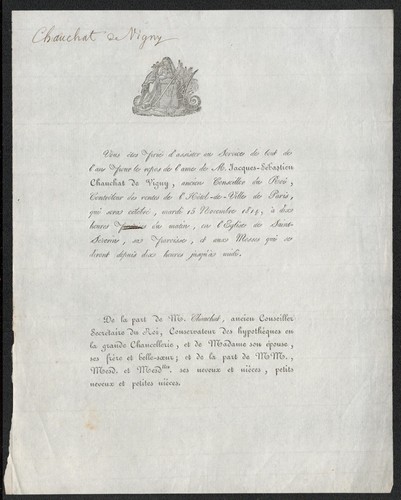 Chauchat de Vigny
Vous êtes Prié d'assister au Service du bout de
l'an Pour le repos de l'ame de M. Jacques-Sébastien
Chauchat de Vigny, ancien Conseiller du Roi,
Contrôleur des rentes de l'Hôtel-de-Ville de Paris,
qui sera célébré, mardi 15 Novembre 1814, à dix
heures du matin, en l'Eglise de Saint-
Severin, sa Paroisse, et aux Messes qui se
diront depuis dix heures jusqu'à midi.
De la part de M. Chauchat, ancien Conseiller
Secrétaire du Roi, Conservateur des hypothèques en
la grande Chancellerie, et de Madame son épouse,
ses frère et belle-sœur; et de la part de M.M.,
Mesd. et Mesd.lles ses neveux et nièces, petits
neveux et petites nièces.